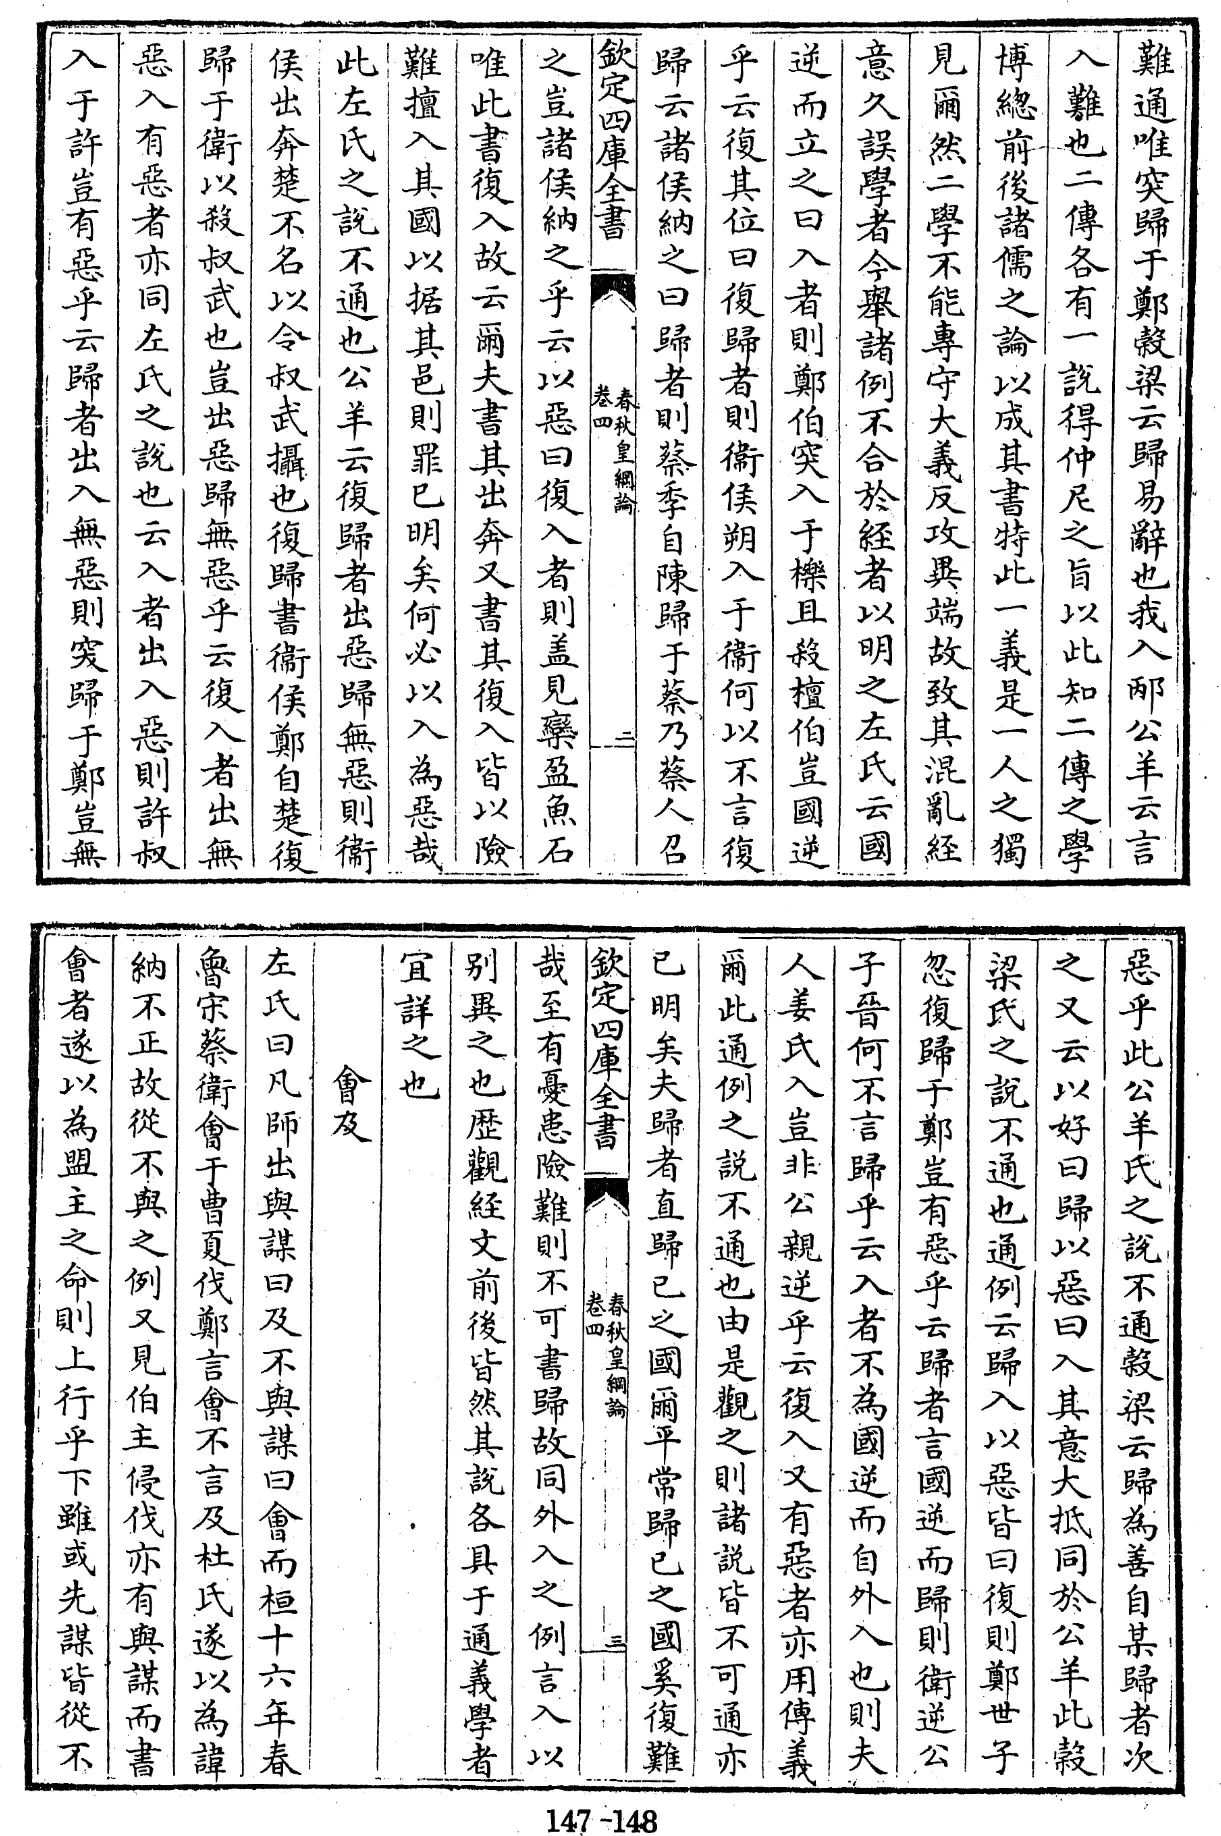 難通唯突歸于鄭穀梁云歸易辭也我入邴公羊云言
入難也二傳各有一說得仲尼之旨以此知二傳之學
博總前後諸儒之論以成其書特此一義是一人之獨
見爾然二學不能專守大義反攻異端故致其混亂經
意久誤學者今舉諸例不合於經者以明之左氏云國
逆而立之曰入者則鄭伯突入于櫟且殺檀伯豈國逆
乎云復其位曰復歸者則衞侯朔入于衞何以不言復
歸云諸侯納之曰歸者則蔡季自陳歸于蔡乃蔡人召
欽定四庫全書
春秋皇綱論
卷四
二
之豈諸侯納之乎云以惡曰復入者則盖見欒盈魚石
唯此書復入故云爾夫書其出奔又書其復入皆以險
難擅入其國以据其邑則罪已明矣何必以入為惡哉
此左氏之說不通也公羊云復歸者出惡歸無惡則衞
侯出奔楚不名以令叔武攝也復歸書衞侯鄭自楚復
歸于衛以殺叔武也豈出惡歸無惡乎云復入者出無
惡入有惡者亦同左氏之說也云入者出入惡則許叔
入于許豈有惡乎云歸者出入無惡則突歸于鄭豈無
惡乎此公羊氏之說不通穀梁云歸為善自某歸者次
之又云以好曰歸以惡曰入其意大抵同於公羊此穀
梁氏之說不通也通例云歸入以惡皆曰復則鄭世子
忽復歸于鄭豈有惡乎云歸者言國逆而歸則衛逆公
子晉何不言歸乎云入者不為國逆而自外入也則夫
人姜氏入豈非公親逆乎云復入又有惡者亦用傳義
爾此通例之說不通也由是觀之則諸說皆不可通亦
已明矣夫歸者直歸已之國爾平常歸已之國奚復難
欽定四庫全書
春秋皇綱論
卷四
三
哉至有憂患險難則不可書歸故同外入之例言入以
別異之也歴觀經文前後皆然其說各具于通義學者
宜詳之也
會及
左氏曰凡師出與謀曰及不與謀曰會而桓十六年春
魯宋蔡衛會于曹夏伐鄭言會不言及杜氏遂以為諱
納不正故從不與之例又見伯主侵伐亦有與謀而書
會者遂以為盟主之命則上行乎下雖或先謀皆從不
147-148